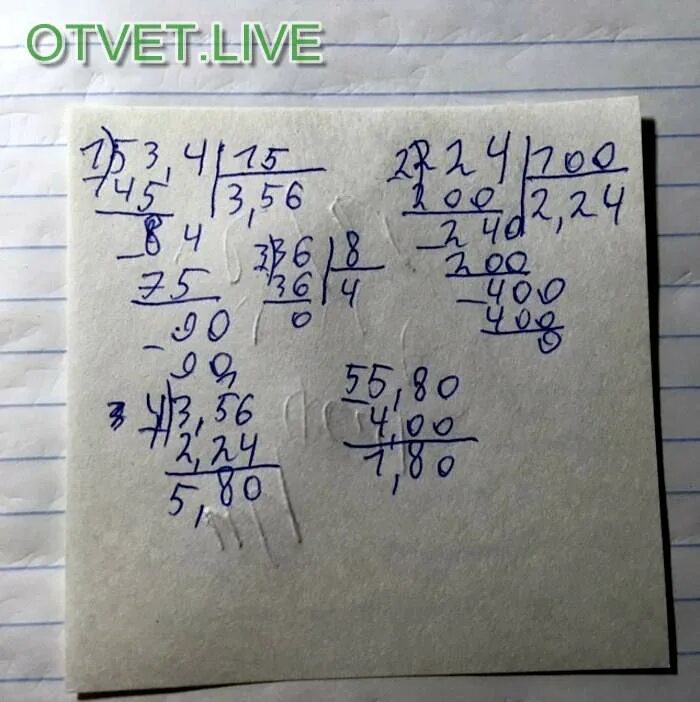 OTVET.LIVE
1) 53,4 | 15
45 | 3,56
- 84
75
- 90
90
2) 224 | 100
200 | 2,24
- 240
200
- 400
400
0
3) 36 | 8
36 | 4
0
4) 3,56
2,24
5,80
5) 5,80
- 4,00
1,80